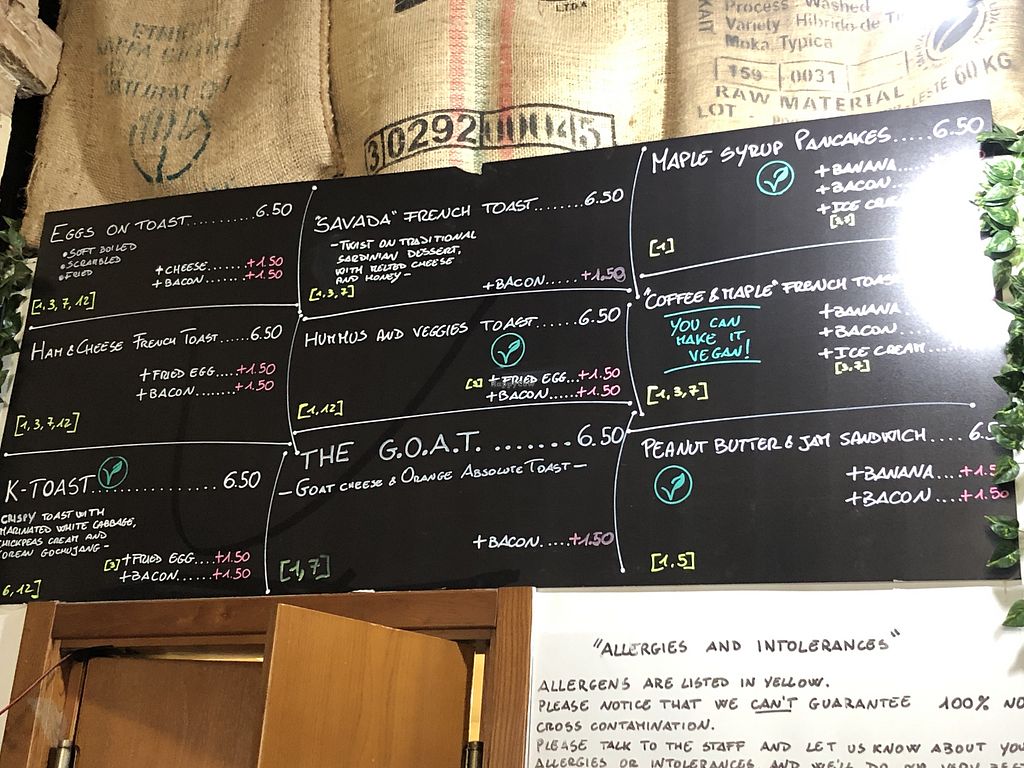 LTDA
Process Washed
Variety - Hibrido de
Moka, Typica
159 0031
RAW MATERIAL
LOT
60 KG
30292 00045
EGGS ON TOAST.........6.50
•SOFT BOILED
•SCRAMBLED
•FRIED
+CHEESE.......+1.50
+BACON.......+1.50
[1,3,7,12]
HAM & CHEESE FRENCH TOAST......6.50
+FRIED EGG....+1.50
+BACON........+1.50
[1,3,7,12]
K-TOAST................6.50
CRISPY TOAST WITH
MARINATED WHITE CABBAGE,
CHICKPEAS CREAM AND
KOREAN GOCHUJANG-
[3]+FRIED EGG....+1.50
+BACON......+1.50
6,12]
"SAVADA" FRENCH TOAST.......6.50
-TWIST ON TRADITIONAL
SARDINIAN DESSERT,
WITH MELTED CHEESE
AND HONEY-
[1,3,7]
+BACON......+1.50
HUMMUS AND VEGGIES TOAST......6.50
[3] +FRIED EGG...+1.50
+BACON......+1.50
[1,12]
THE G.O.A.T. .......6.50
-GOAT CHEESE & ORANGE ABSOLUTE TOAST-
+BACON.....+1.50
[1,7]
MAPLE SYRUP PANCAKES.....6.50
+BANANA
+BACON
+ICE
[1]
"COFFEE & MAPLE" FRENCH
YOU CAN
MAKE IT
VEGAN!
+BANANA
+BACON
+ICE CREAM
[3,7]
[1,3,7]
PEANUT BUTTER & JAM SANDWICH....6.5
+BANANA...+1.50
+BACON....+1.50
[1,5]
"ALLERGIES AND INTOLERANCES"
ALLERGENS ARE LISTED IN YELLOW.
PLEASE NOTICE THAT WE CAN'T GUARANTEE 100% NO
CROSS CONTAMINATION.
PLEASE TALK TO THE STAFF AND LET US KNOW ABOUT YOU
ALLERGIES OR INTOLERANCES AND WE'LL DO OUR VERY BEST